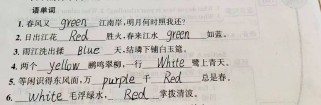 语单词
1. 春风又 green 江南岸,明月何时照我还?
2. 日出江花 Red 胜火,春来江水 green 如蓝。
3. 雨江洗出揉 Blue 天,结璘下铺白玉篇。
4. 两个 yellow 鹂鸣翠柳,一行 White 鹭上青天。
5. 等闲识得东风面,万 purple 千 Red 总是春。
6. White 毛浮绿水, Red 掌拨清波。